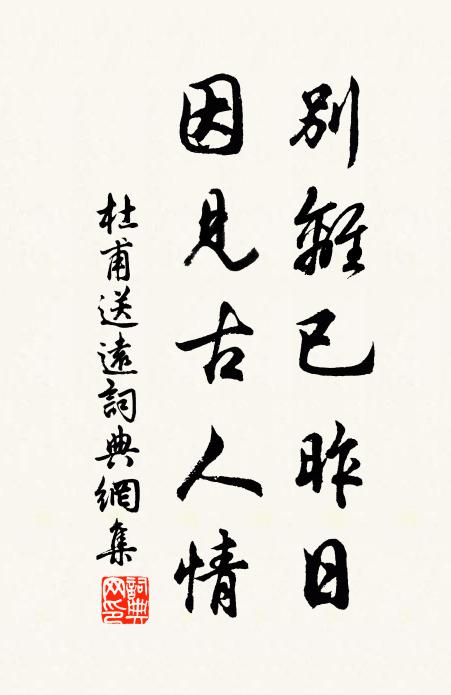 別離已昨日
因見古人情
杜甫送遠詞典網集
詞典
网印